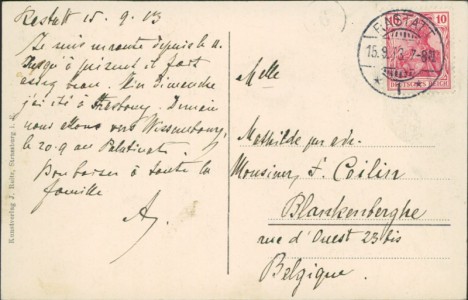 Rastatt 15. 9. 13
Je suis en route depuis le 11.
Jusqu'à présent il fait
assez beau. Hier dimanche
j'ai été à Strasbourg. Demain
nous allons vers Wissembourg,
le 20.9 au Palatinat.
Bonbaiser à toute la
famille
A.
Kunstverlag J. Bolte, Strassburg i. E.
RASTATT
15.9.13. 7-8
10
DEUTSCHES REICH
Melle
Mathilde
Monsieur F. Coilin
Blankenberghe
rue d'Ouest 23 bis
Belgique.